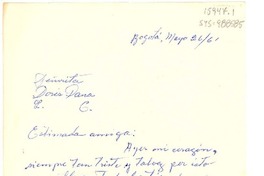 15947.1
Bogotá, Mayo 26/61
Señorita
Doris Dana
L. C.
Estimada amiga:
Ayer mi corazón,
siempre tan triste y talvez por esto